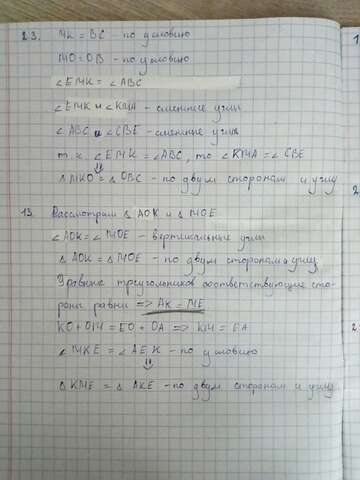 23. MK = BC - по условию
MO = OB - по условию
∠EMK = ∠ABC
∠EMK и ∠KMA - смежные углы
∠ABC и ∠CBE - смежные углы
т.к. ∠EMK = ∠ABC, то ∠KMA = ∠CBE
⇓
△MKO = △OBC - по двум сторонам и углу
13. Рассмотрим △AOK и △MOE
∠AOK = ∠MOE - вертикальные углы
△AOK = △MOE - по двум сторонам и углу
У равных треугольников соответствующие сто-
роны равны => AK = ME
KO + OM = EO + OA => KM = EA
∠MKE = ∠AEK - по условию
⇓
△KME = △AKE - по двум сторонам и углу
2
2